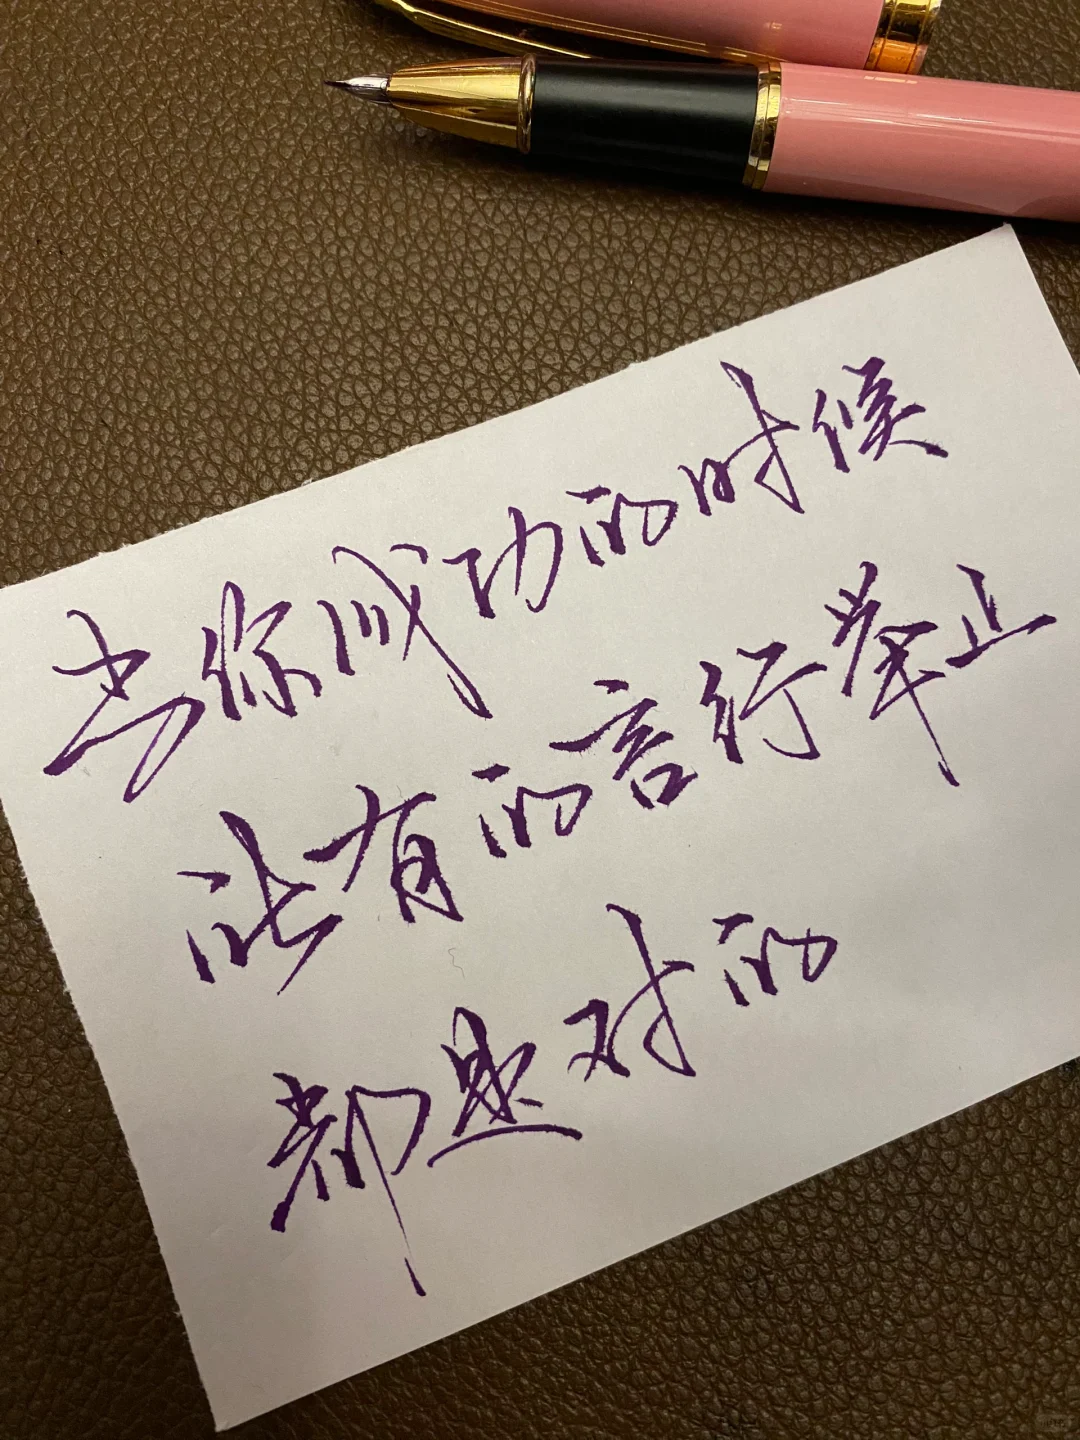 当你成功的时候
所有的言行举止
都是对的